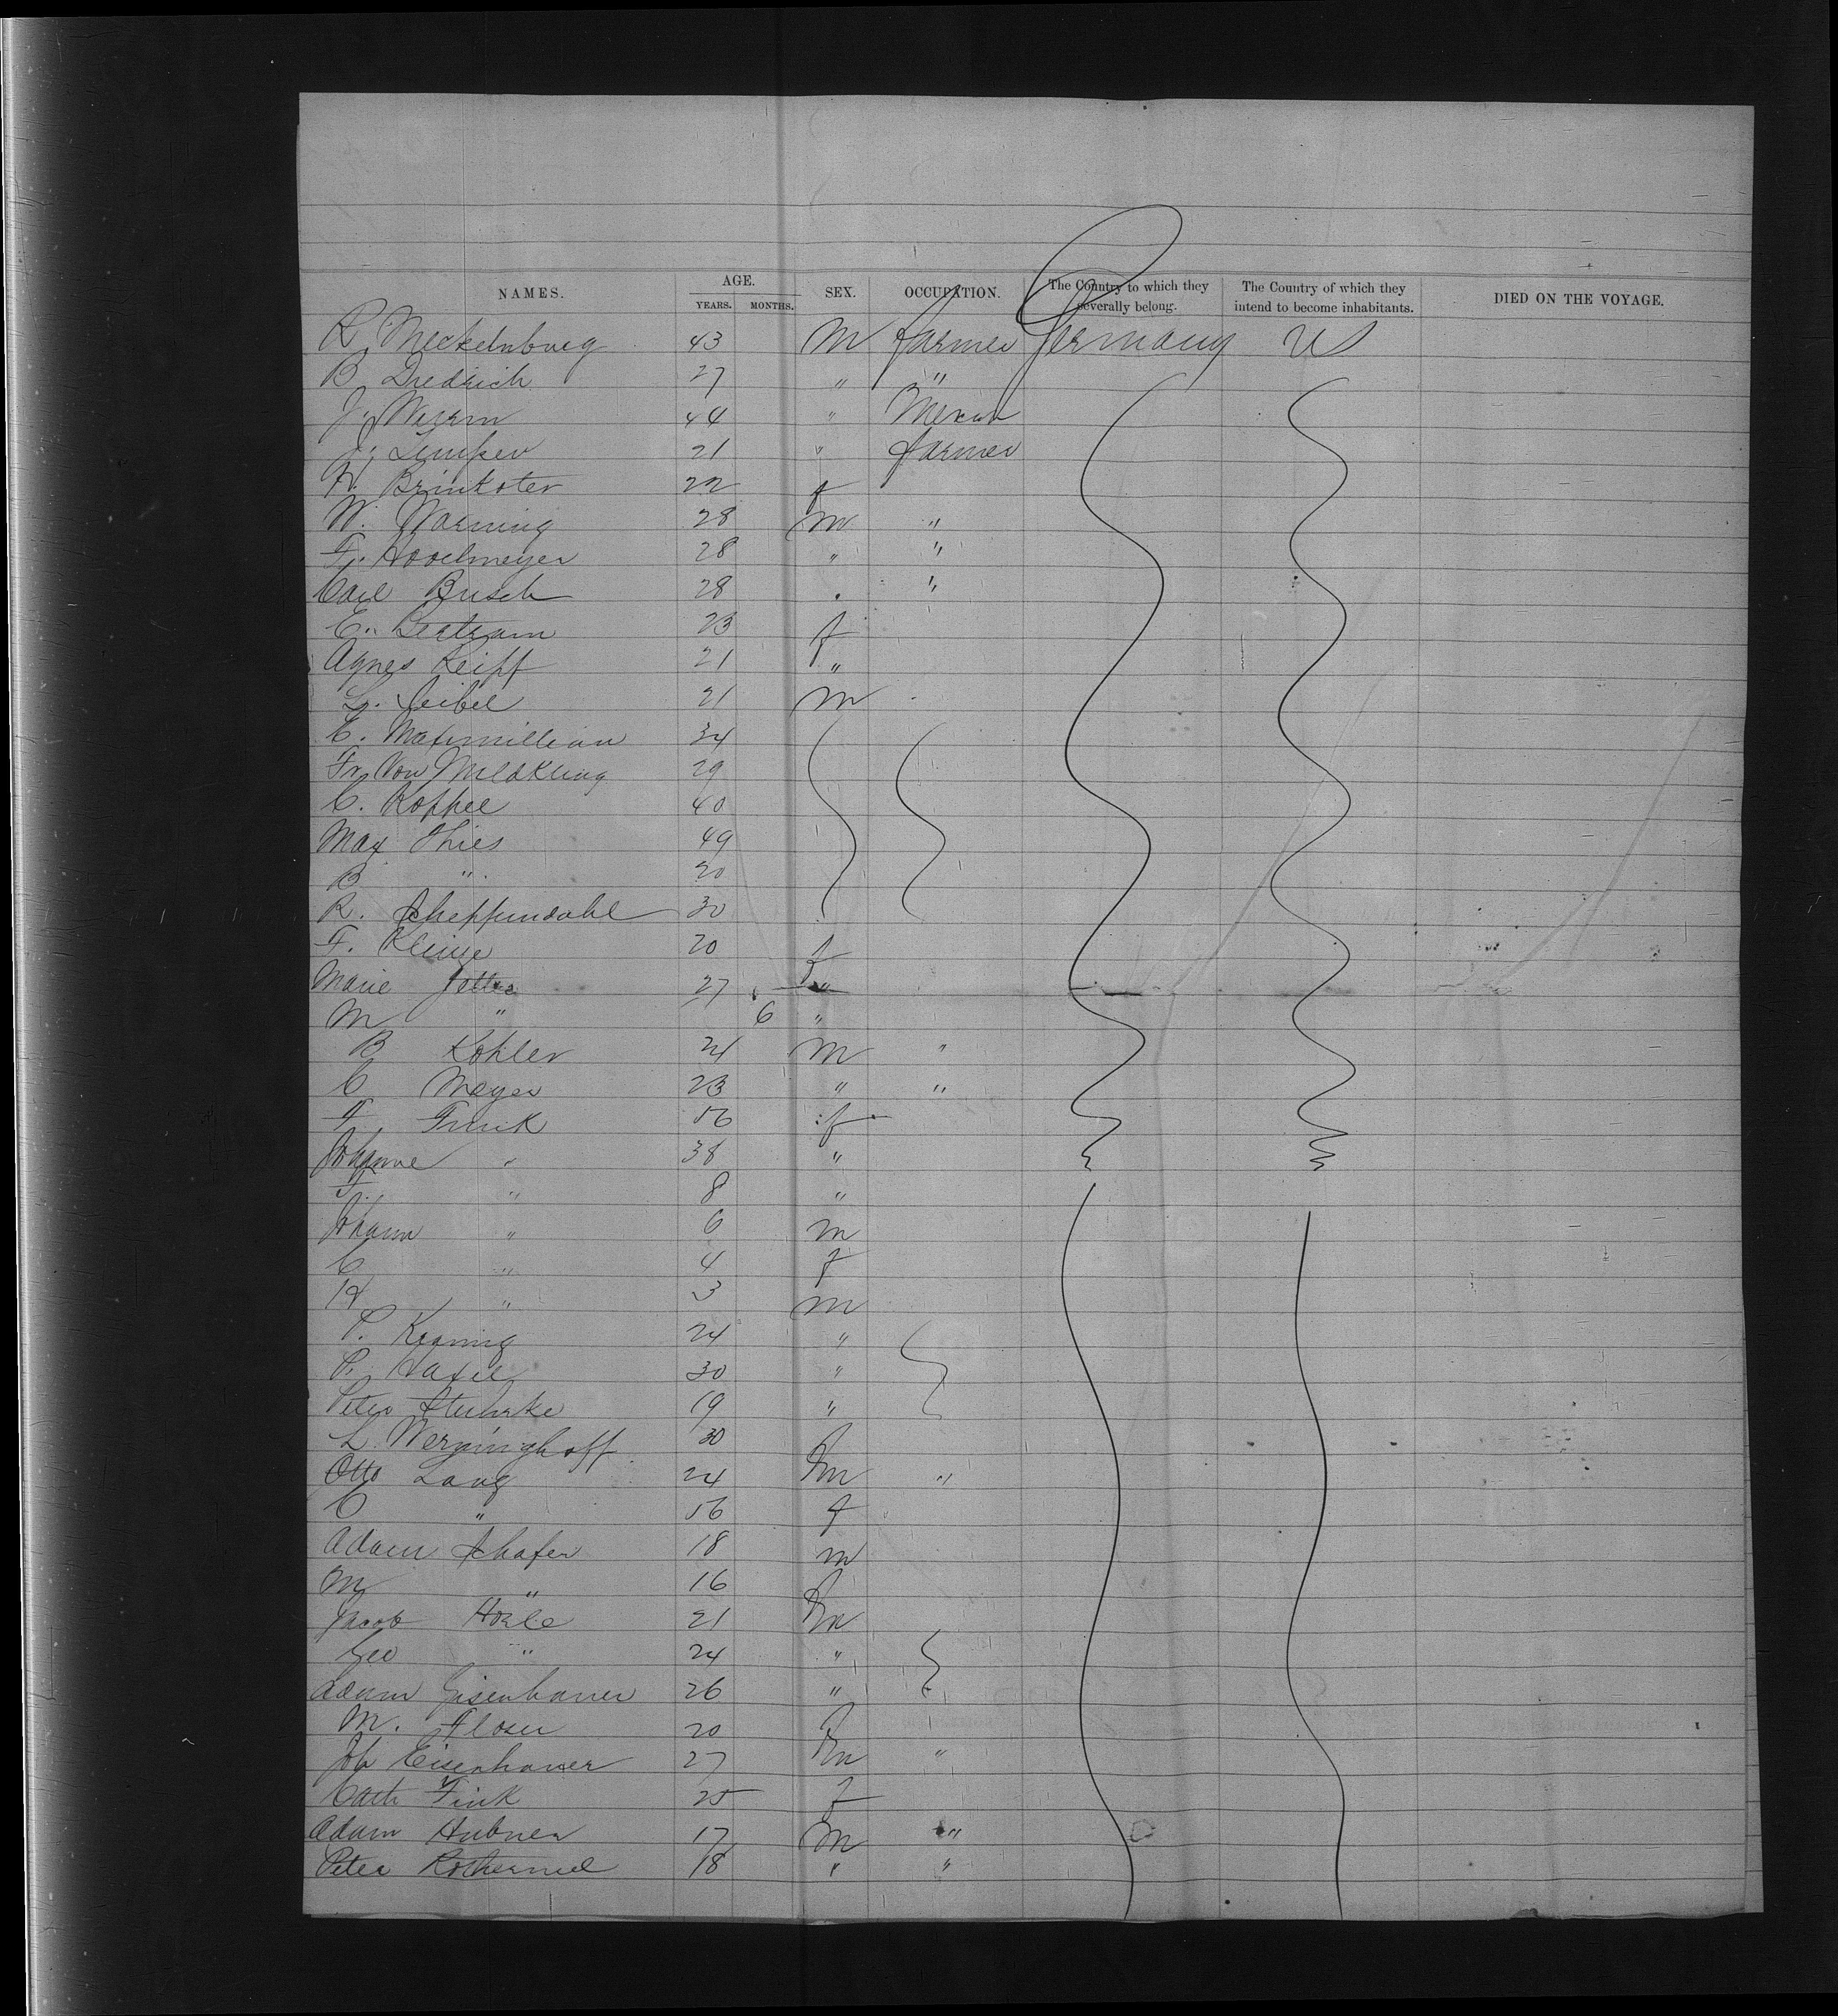 NAMES. AGE. YEARS. MONTHS. SEX. OCCUPATION. The Country to which they severally belong. The Country of which they intend to become inhabitants. DIED ON THE VOYAGE.
R. Meckelnburg 43 M farmer Germany US
B. Diedrich 27 " "
J. 44 "
J. 21 " farmer
H. Brinkoter 22 f
W. Warning 28 m "
F. 28 " "
Carl Busch 28 . "
E. Bertram 23 f
Agnes Reiff 21 "
L. Seibel 21 m
C. Maximillian 34
Fr. Von 29
C. Koppel 40
Max Thies 49
B " 20
R. Scheppendahl 30
F. Kluge 20 f
Marie 27 "
M " 6 "
B Kohler 24 m "
C Meyer 23 " "
F. Funk 56 f
Johanne " 38 "
F. " 8 "
Johann " 6 m
C " 4 f
H " 3 m
P. Koaning 24 "
P. 30 "
Peter Stuhrke 19 "
L. Werninghoff 30 f
Otto Lang 24 m "
C " 56 f
Adam Schafer 18 m
M " 16 f
Jacob 21 m
Geo " 24 "
Adam Eisenhauer 26 "
M. 20 f
Joh Eisenhauer 27 m "
Cath Fink 25 f
Adam Hubner 17 M "
Peter Rothermel 18 " "